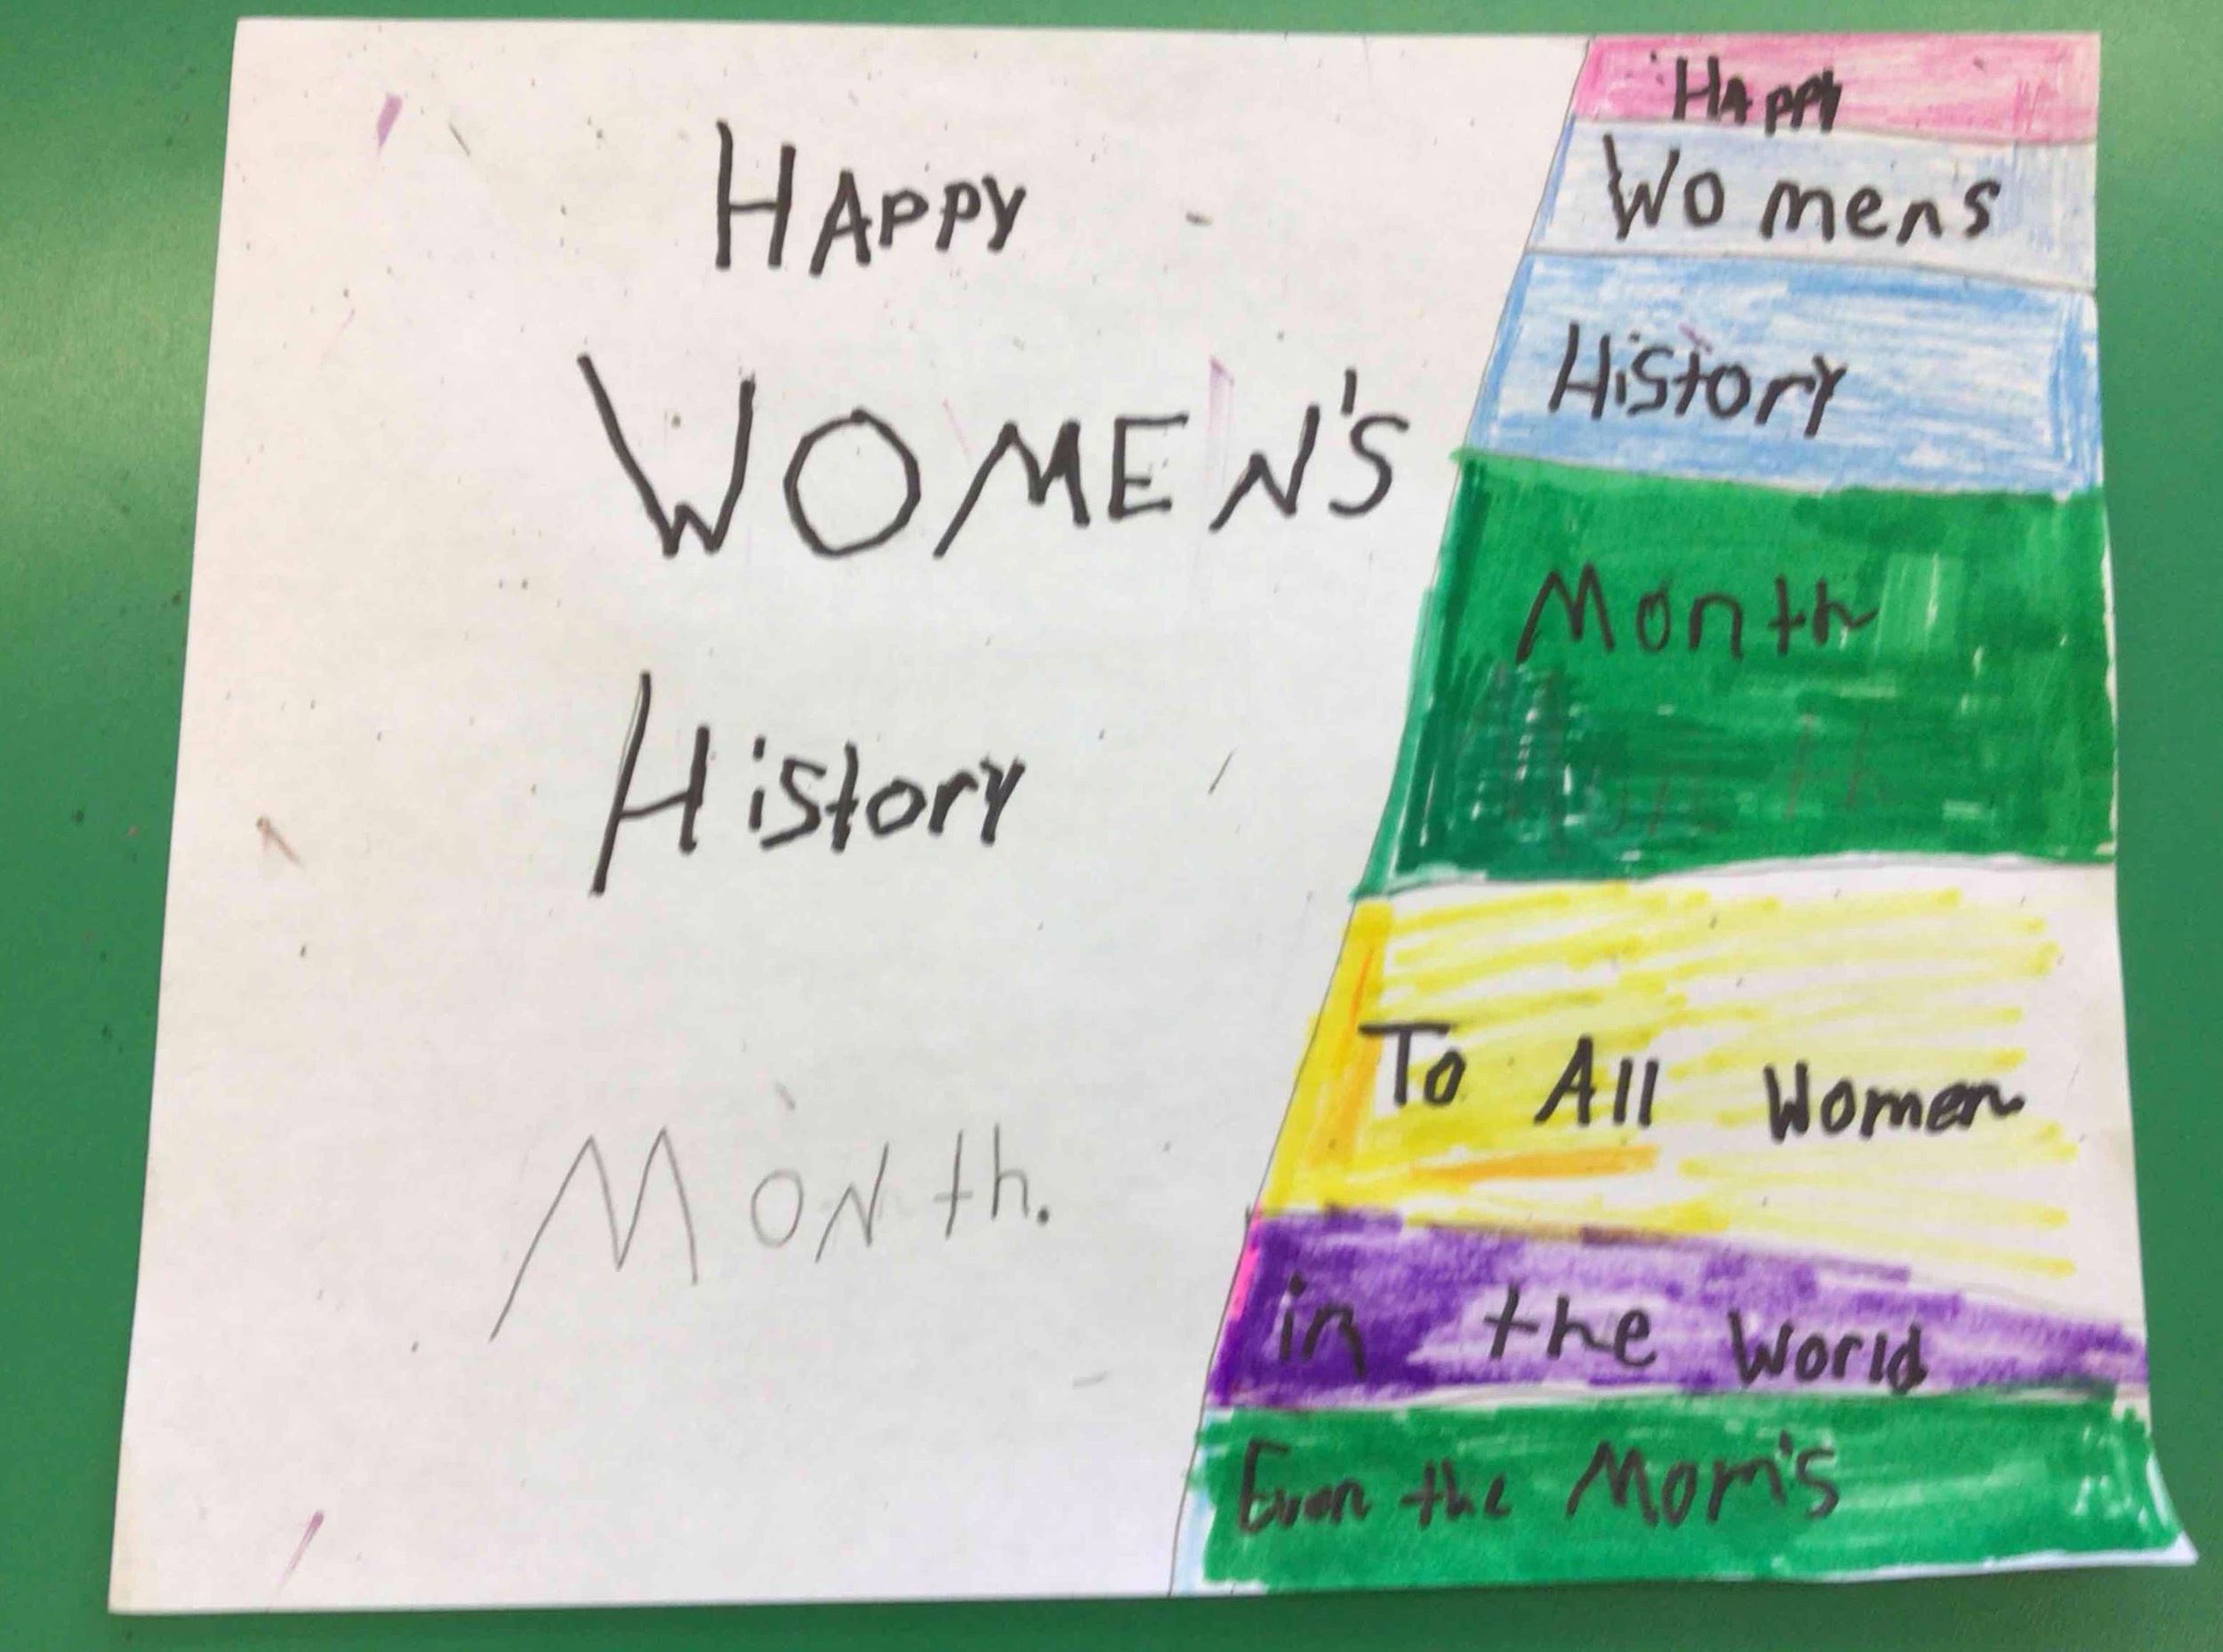 HAPPY
WOMEN'S
History
MONth.
HAppy
Womens
History
Month
To All Women
in the World
Even the Mom's